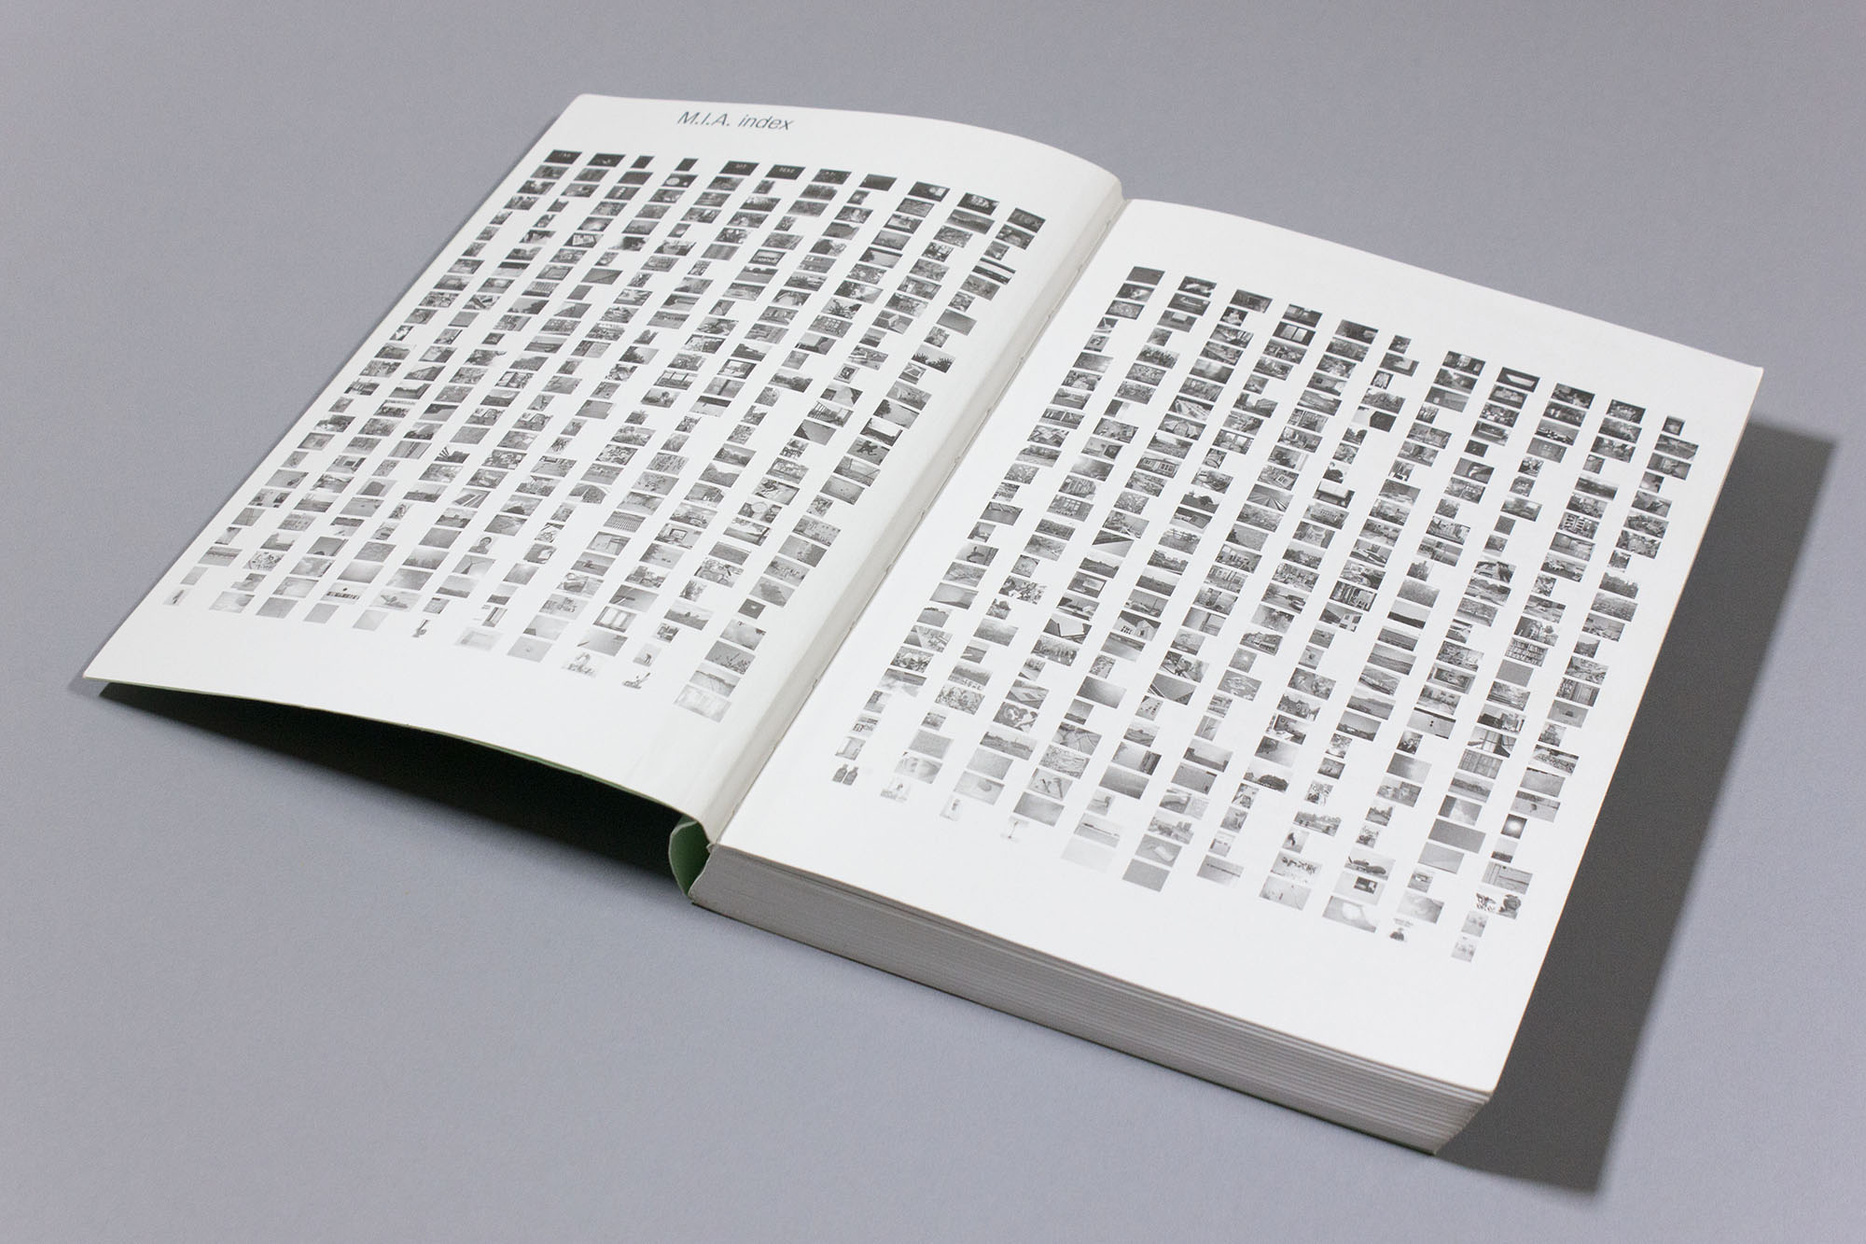 M.I.A. index